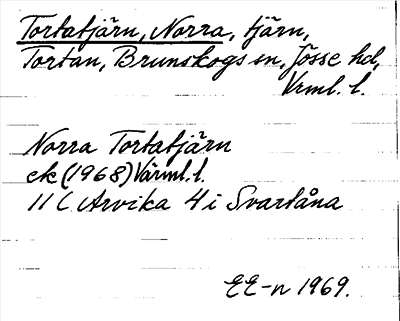 Tortatjärn, Norra, tjärn,
Tortan, Brunskogs sn, Jösse hd,
Vrml. l.
Norra Tortatjärn
ek (1968) Värml. l.
11 C Arvika 4 i Svartåna
EE-n 1969.